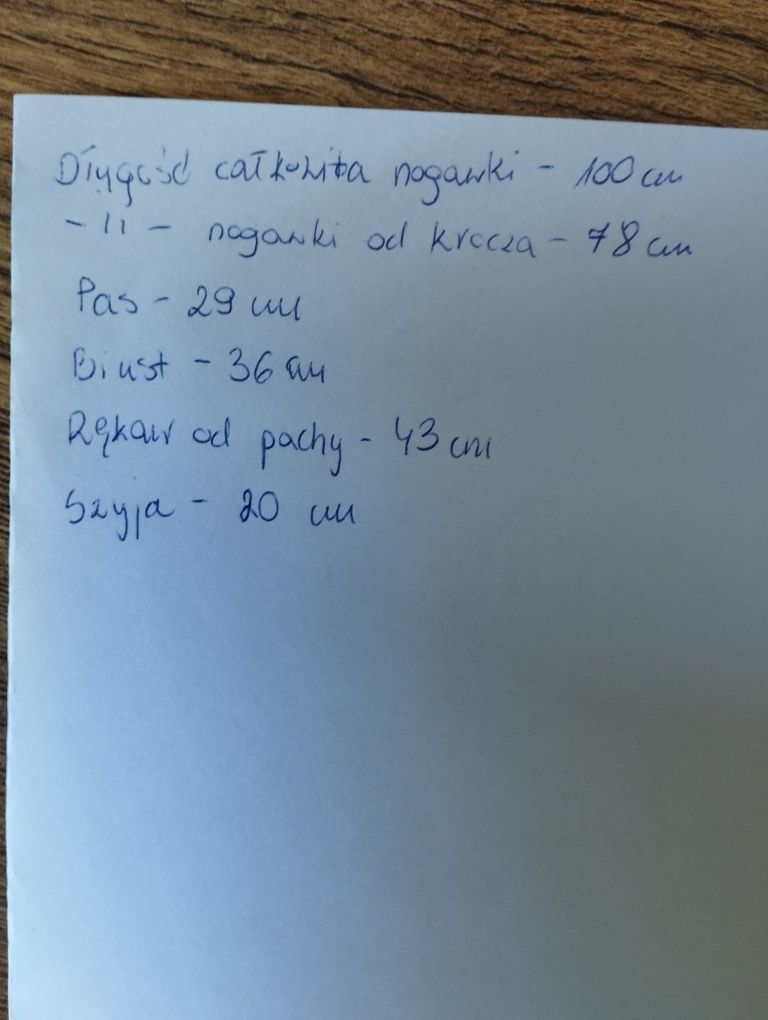 Długość całkowita nogawki - 100 cm
- 11 - nogawki od krocza - 78 cm
Pas - 29 cm
Biust - 36 cm
Rękaw od pachy - 43 cm
Szyja - 20 cm